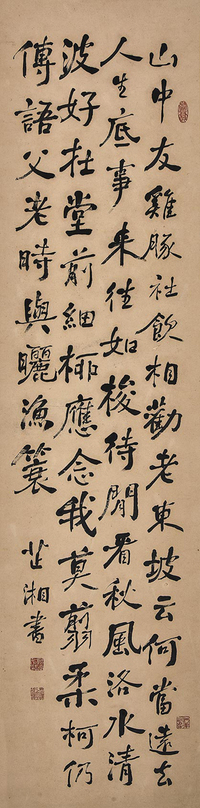 山中友雞豚社飲相勸老東坡云何當遠去
人生底事來往如梭待閒看秋風洛水清
波好在堂前細柳應念我莫翦柔柯仍
傳語父老時與曬漁蓑 芷湘書